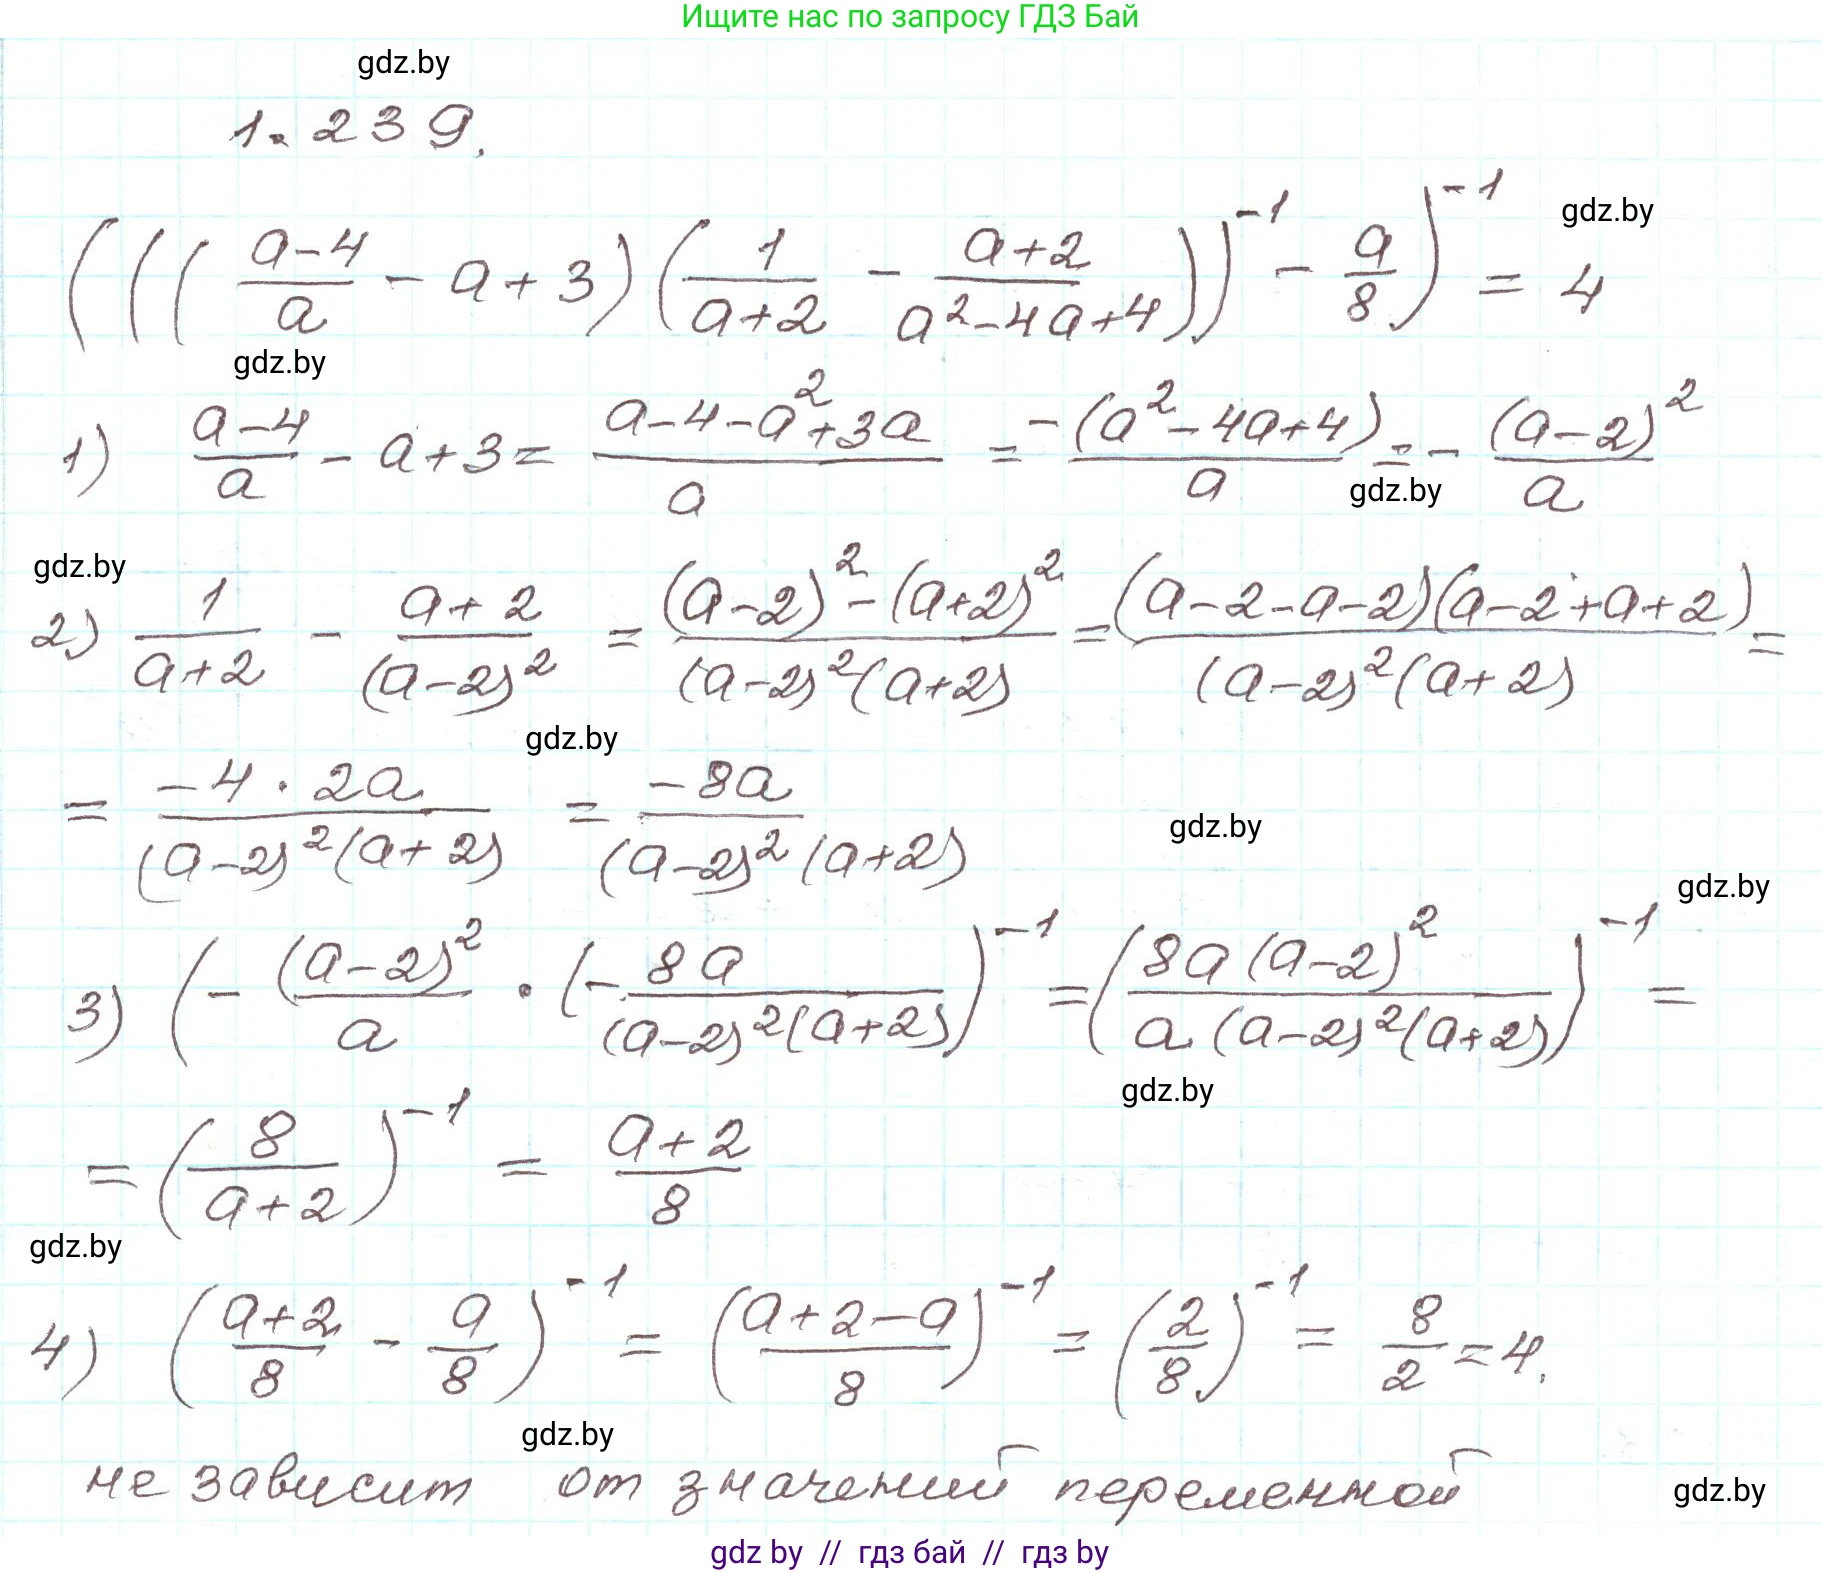 Ищите нас по запросу ГДЗ Бай
gdz.by
1.239.
(((a-4/a - a+3)(1/a+2 - a+2/a²-4a+4))⁻¹ - a/8)⁻¹ = 4
gdz.by
gdz.by
1) a-4/a - a+3 = a-4-a²+3a/a = -(a²-4a+4)/a = - (a-2)²/a
gdz.by
gdz.by
2) 1/a+2 - a+2/(a-2)² = (a-2)²-(a+2)²/(a-2)²(a+2) = (a-2-a-2)(a-2+a+2)/(a-2)²(a+2) =
gdz.by
= -4·2a/(a-2)²(a+2) = -8a/(a-2)²(a+2)
gdz.by
gdz.by
3) (- (a-2)²/a · (- 8a/(a-2)²(a+2))⁻¹ = (8a(a-2)²/a.(a-2)²(a+2))⁻¹ =
gdz.by
= (8/a+2)⁻¹ = a+2/8
gdz.by
4) (a+2/8 - a/8)⁻¹ = (a+2-a/8)⁻¹ = (2/8)⁻¹ = 8/2 = 4.
gdz.by
не зависит от значений переменной
gdz.by
gdz by // гдз бай // гдз by